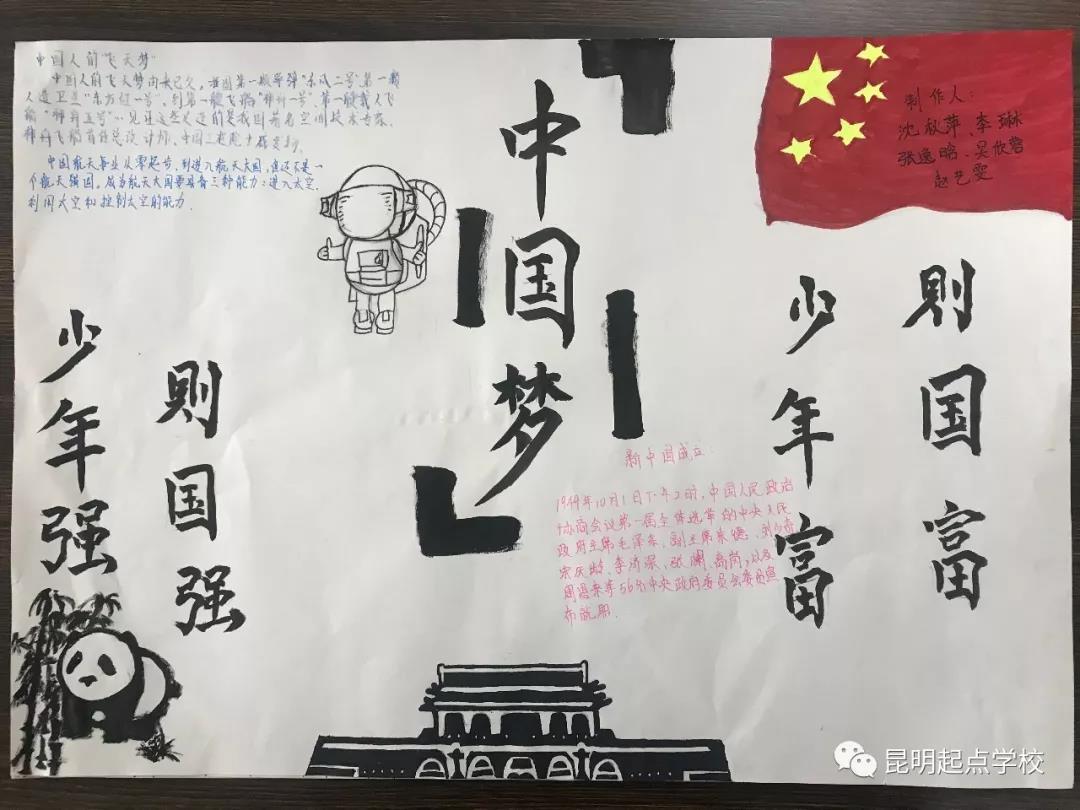 中国人的"飞天梦"
中国人的飞天梦由来已久,祖国第一枚导弹"东风二号"第一颗
人造卫星"东方红一号",到第一艘飞船"神州一号",第一艘载人飞
船"神舟五号"…见证这些足迹的是我国著名空间技术专家、
神舟飞船首任总设计师、中国工程院
中国航天事业从零起步,到进入航天大国,但还不是一
个航天强国。成为航天大国要具备三种能力:进入太空、
利用太空和控制太空的能力.
中国梦
制作人:
沈秋萍、李琳
张逸晗、吴欣蓉
赵艺雯
少年强
则国强
少年富
则国富
新中国成立:
1949年10月1日下午2时,中国人民政治
协商会议第一届全体选举的中央人民
政府主席毛泽东、副主席朱德、刘少奇
宋庆龄、李济深、张澜、高岗,以及
周恩来等56名中央政府委员会委员宣
布就职.
昆明起点学校